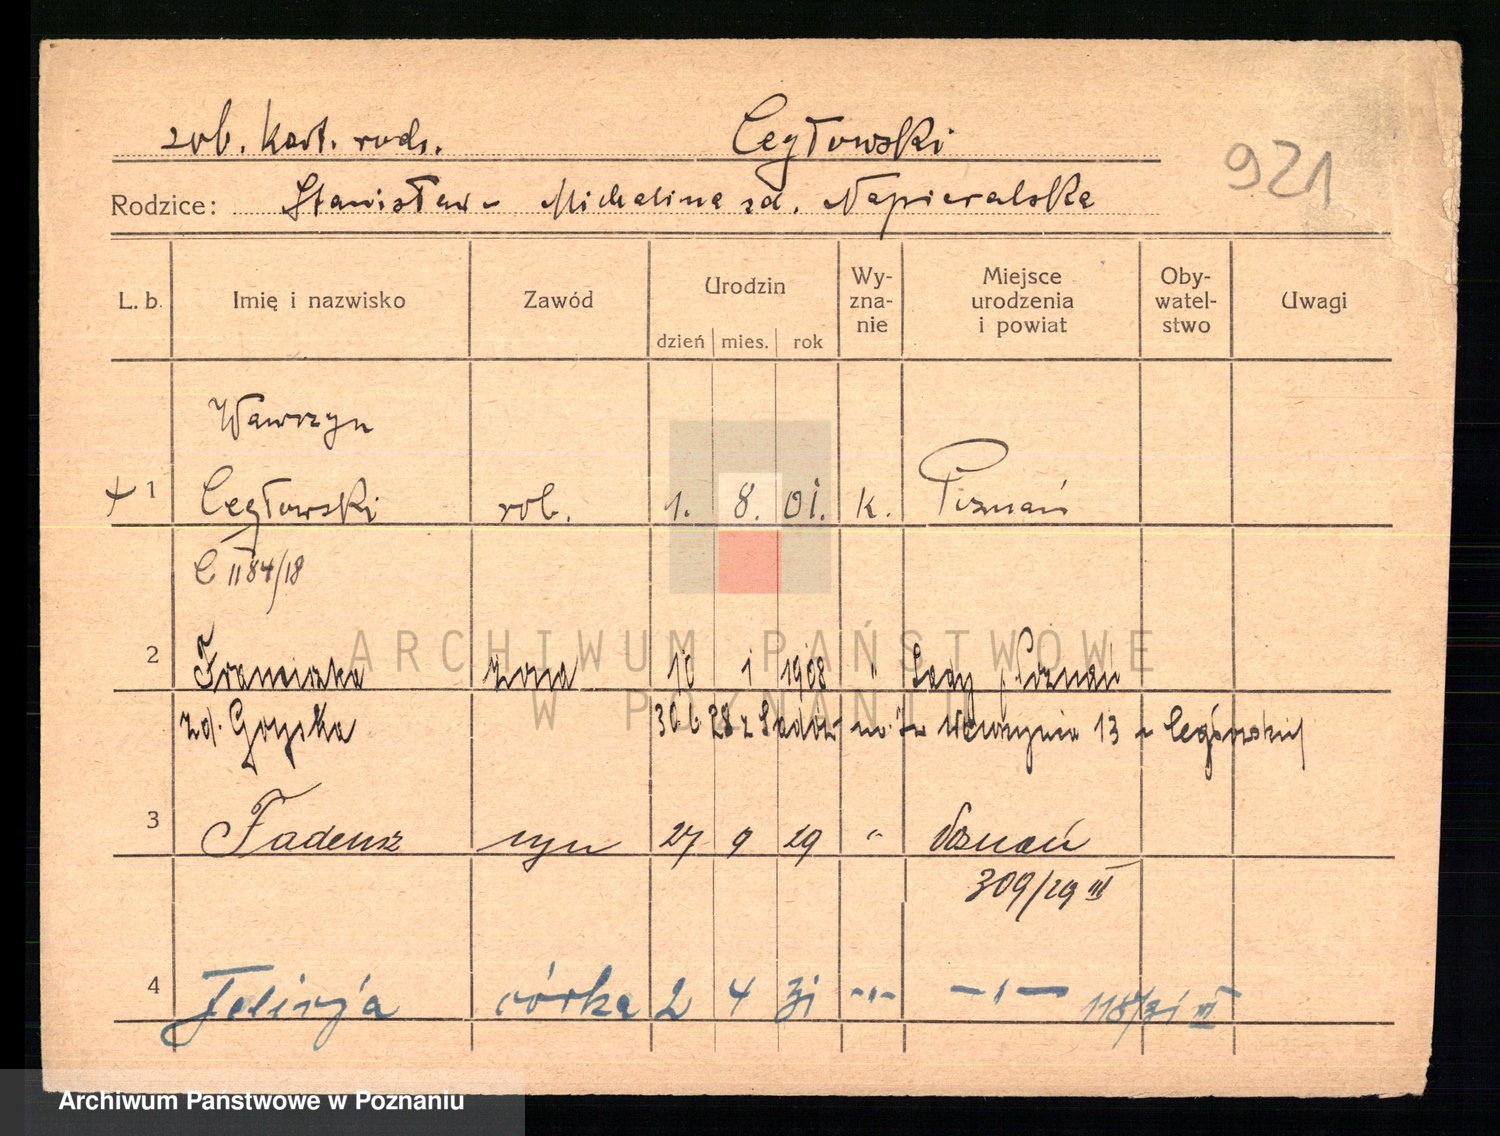 zob. kart. rodz. Cegłowski
921
Rodzice: Stanisław - Michalina zd. Napieralska
L. b. Imię i nazwisko Zawód Urodzin Wy-zna-nie Miejsce urodzenia i powiat Oby-watel-stwo Uwagi
dzień mies. rok
Wawrzyn
1 Cegłowski rob. 1. 8. 01. k. Poznań
C II 84/18
ARCHIWUM PAŃSTWOWE
W POZNANIU
2 Franciszka żona 10 1 1908 " Sady, Poznań
zd. Gozska 30 6 28 z Wawrzyna 13 Cegłowski
3 Tadeusz syn 27 9 29 " Poznań
309/29 III
4 Felicja córka 2 4 31 -"- -"- 118/31 III
Archiwum Państwowe w Poznaniu